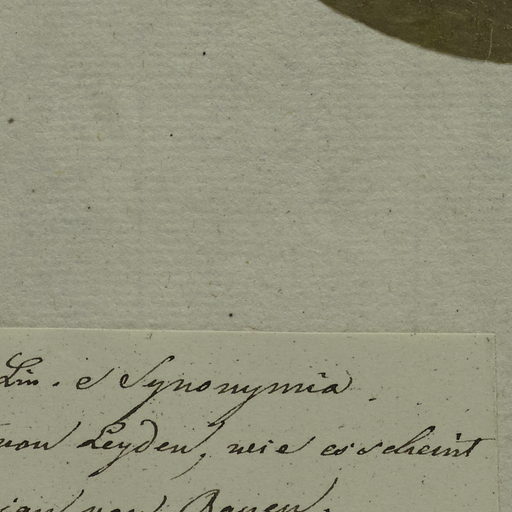 Lin. e Synonymia.
von Leyden, wie es scheint
van Royen.